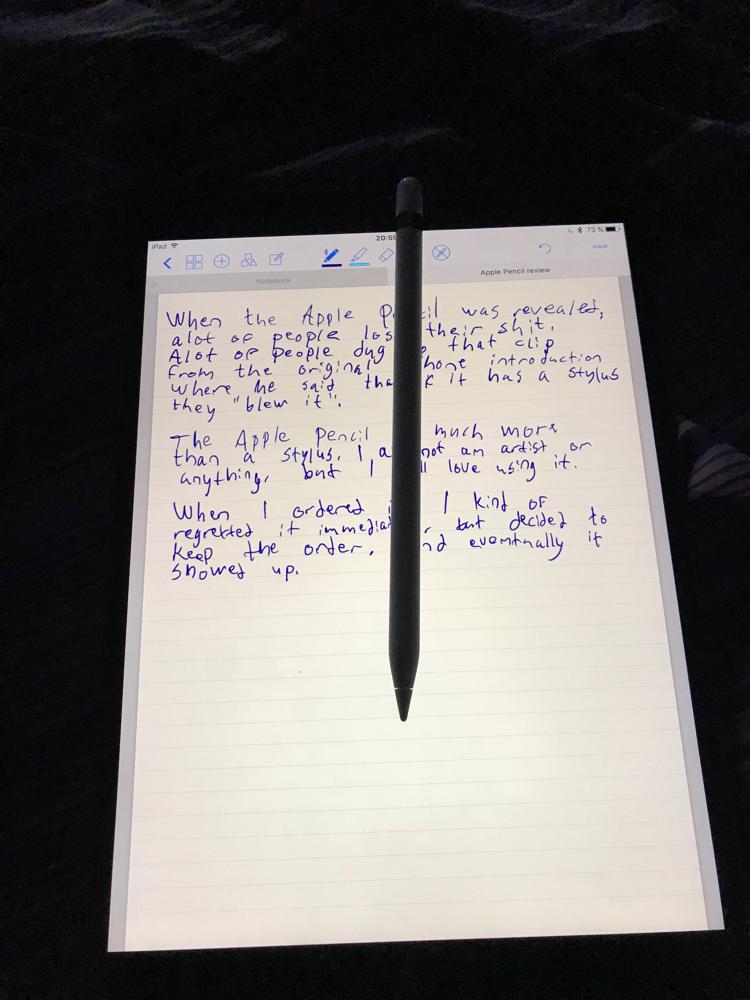 iPad 20:59 73 %
Notebook Apple Pencil review
When the Apple was revealed,
alot of people their shit.
Alot of people dug that clip
from the original introduction
where he said if it has a stylus
they "blew it".
The Apple Pencil much more
than a stylus. I not an artist or
anything, but I love using it.
When I ordered I kind of
regretted it , but decided to
keep the order, eventually it
showed up.